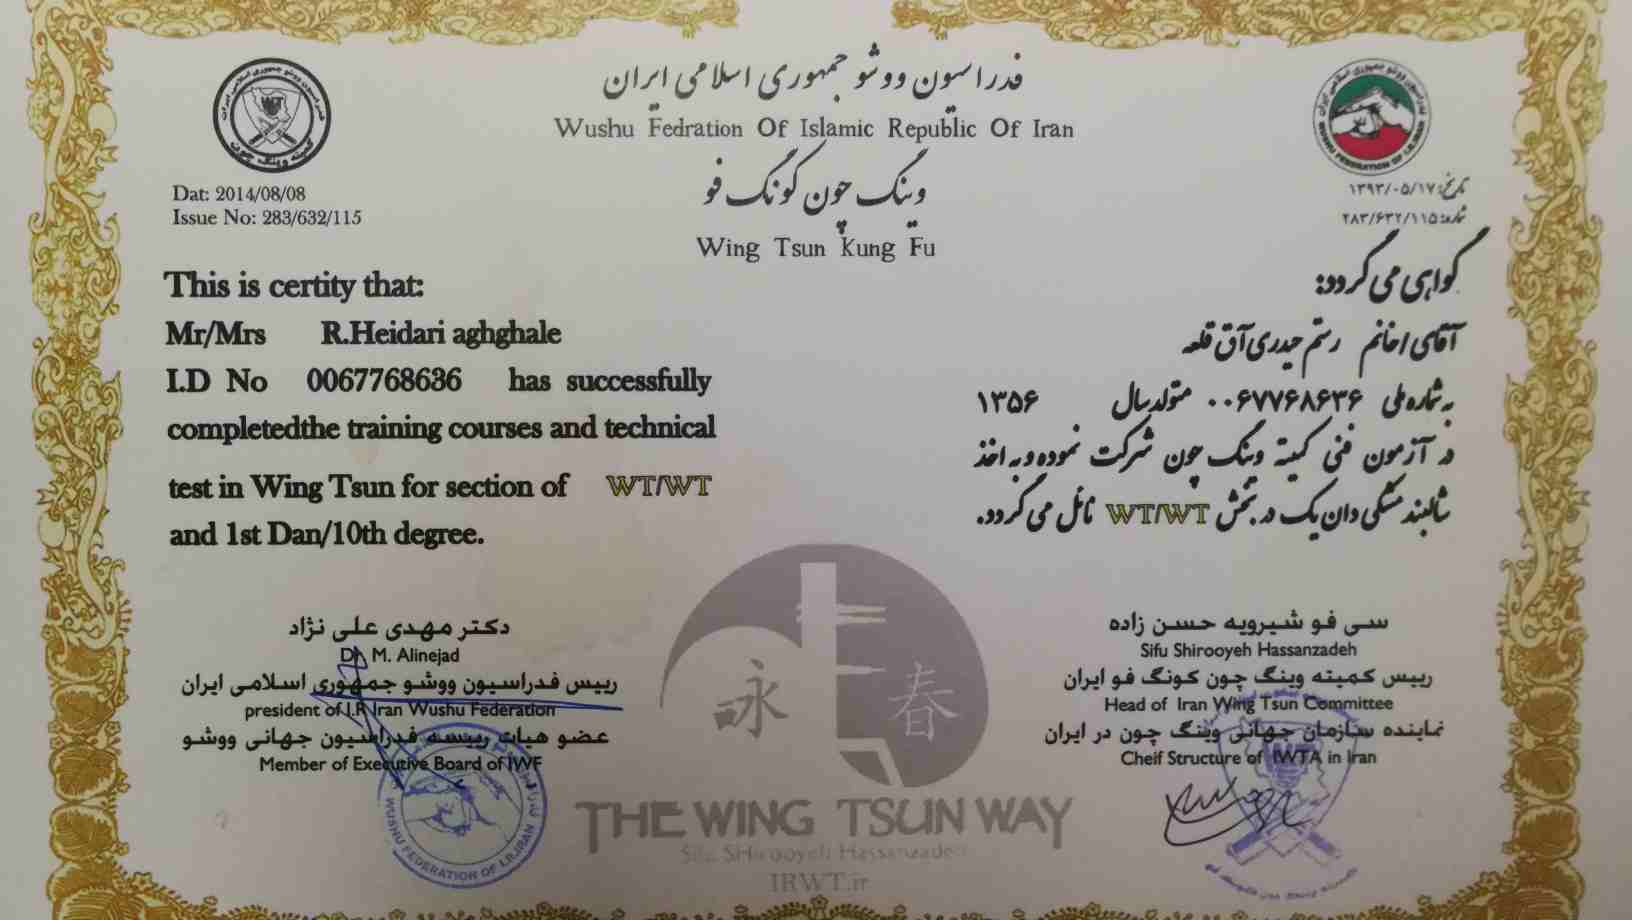 فدراسیون ووشو جمهوری اسلامی ایران
Wushu Fedration Of Islamic Republic Of Iran
وینگ چون کونگ فو
Wing Tsun Kung Fu
کمیته وینگ چون
Dat: 2014/08/08
Issue No: 283/632/115
WUSHU FEDERATION OF I.R.IRAN
تاریخ: ۱۳۹۳/۰۵/۱۷
شماره: ۲۸۳/۶۳۲/۱۱۵
This is certity that:
Mr/Mrs R.Heidari aghghale
I.D No 0067768636 has successfully
completedthe training courses and technical
test in Wing Tsun for section of WT/WT
and 1st Dan/10th degree.
گواهی می گردد:
آقای/خانم رستم حیدری آق قلعه
به شماره ملی ۰۰۶۷۷۶۸۶۳۶ متولد سال ۱۳۵۶
در آزمون فنی کمیته وینگ چون شرکت نموده و به اخذ
شالبند مشکی دان یک در بخش WT/WT نائل می گردد.
دکتر مهدی علی نژاد
Dr. M. Alinejad
رییس فدراسیون ووشو جمهوری اسلامی ایران
president of I.R Iran Wushu Federation
عضو هیات رییسه فدراسیون جهانی ووشو
Member of Executive Board of IWF
WUSHU FEDERATION OF I.R.IRAN
سی فو شیرویه حسن زاده
Sifu Shirooyeh Hassanzadeh
رییس کمیته وینگ چون کونگ فو ایران
Head of Iran Wing Tsun Committee
نماینده سازمان جهانی وینگ چون در ایران
Cheif Structure of IWTA in Iran
咏 春
THE WING TSUN WAY
Sifu SHirooyeh Hassanzadeh
IRWT.ir